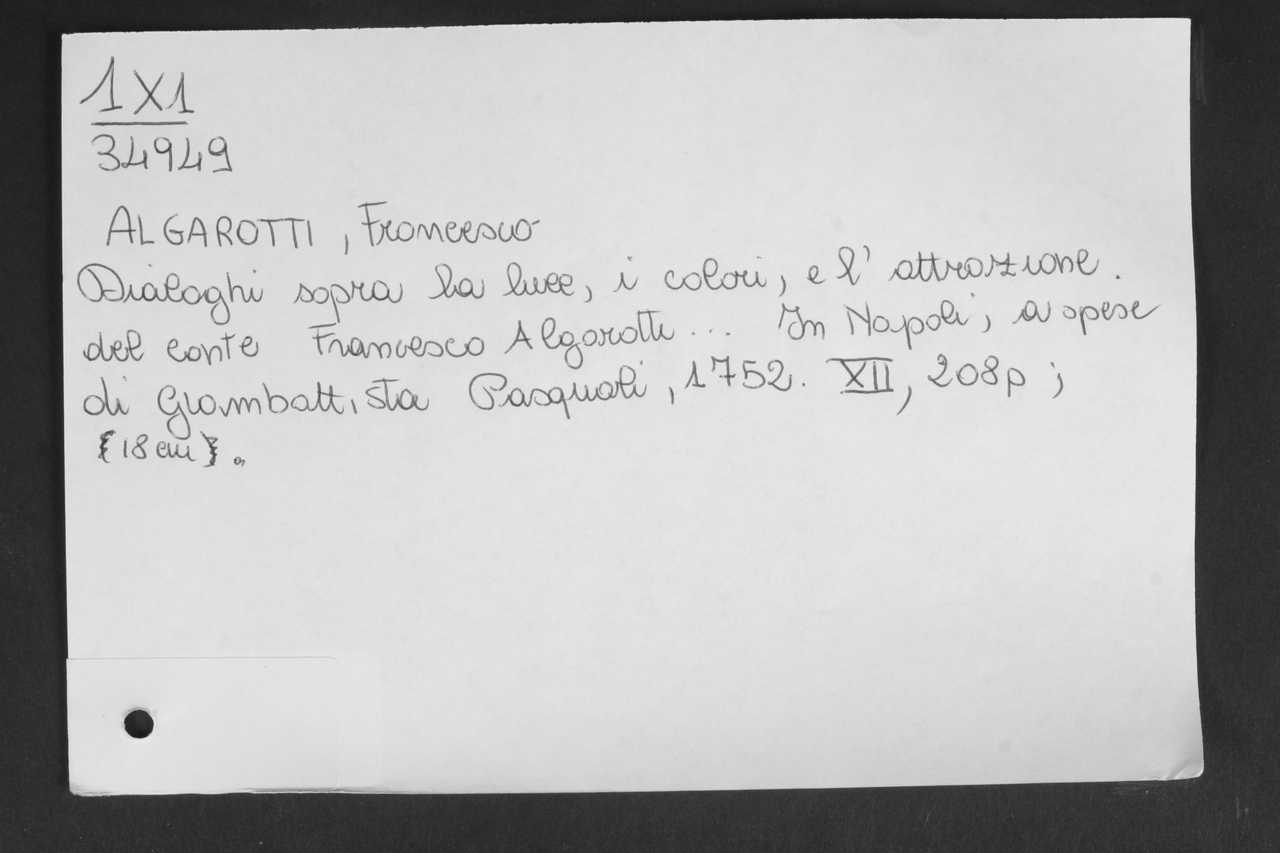 1X1
34949
ALGAROTTI, Francesco
Dialoghi sopra la luce, i colori, e l' attrazione.
del conte Francesco Algarotti ... In Napoli, a spese
di Giambattista Pasquali, 1752. XII, 208p;
[18 cm].